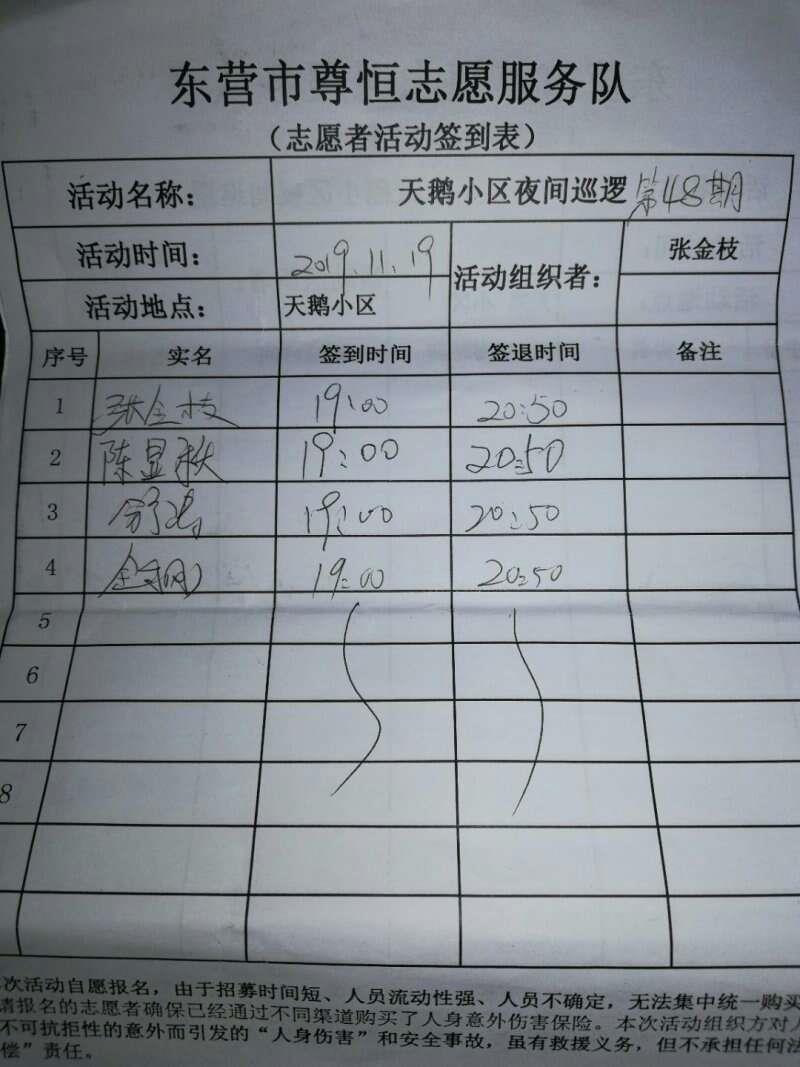 东营市尊恒志愿服务队
（志愿者活动签到表）
活动名称： 天鹅小区夜间巡逻 第48期
活动时间： 2019.11.19 活动组织者： 张金枝
活动地点： 天鹅小区
序号 实名 签到时间 签退时间 备注
1 张金枝 19:00 20:50
2 陈显秋 19:00 20:50
3 19:00 20:50
4 19:00 20:50
5
6
7
8
次活动自愿报名，由于招募时间短、人员流动性强、人员不确定，无法集中统一购买
请报名的志愿者确保已经通过不同渠道购买了人身意外伤害保险。本次活动组织方对人
不可抗拒性的意外而引发的“人身伤害”和安全事故，虽有救援义务，但不承担任何法
偿”责任。